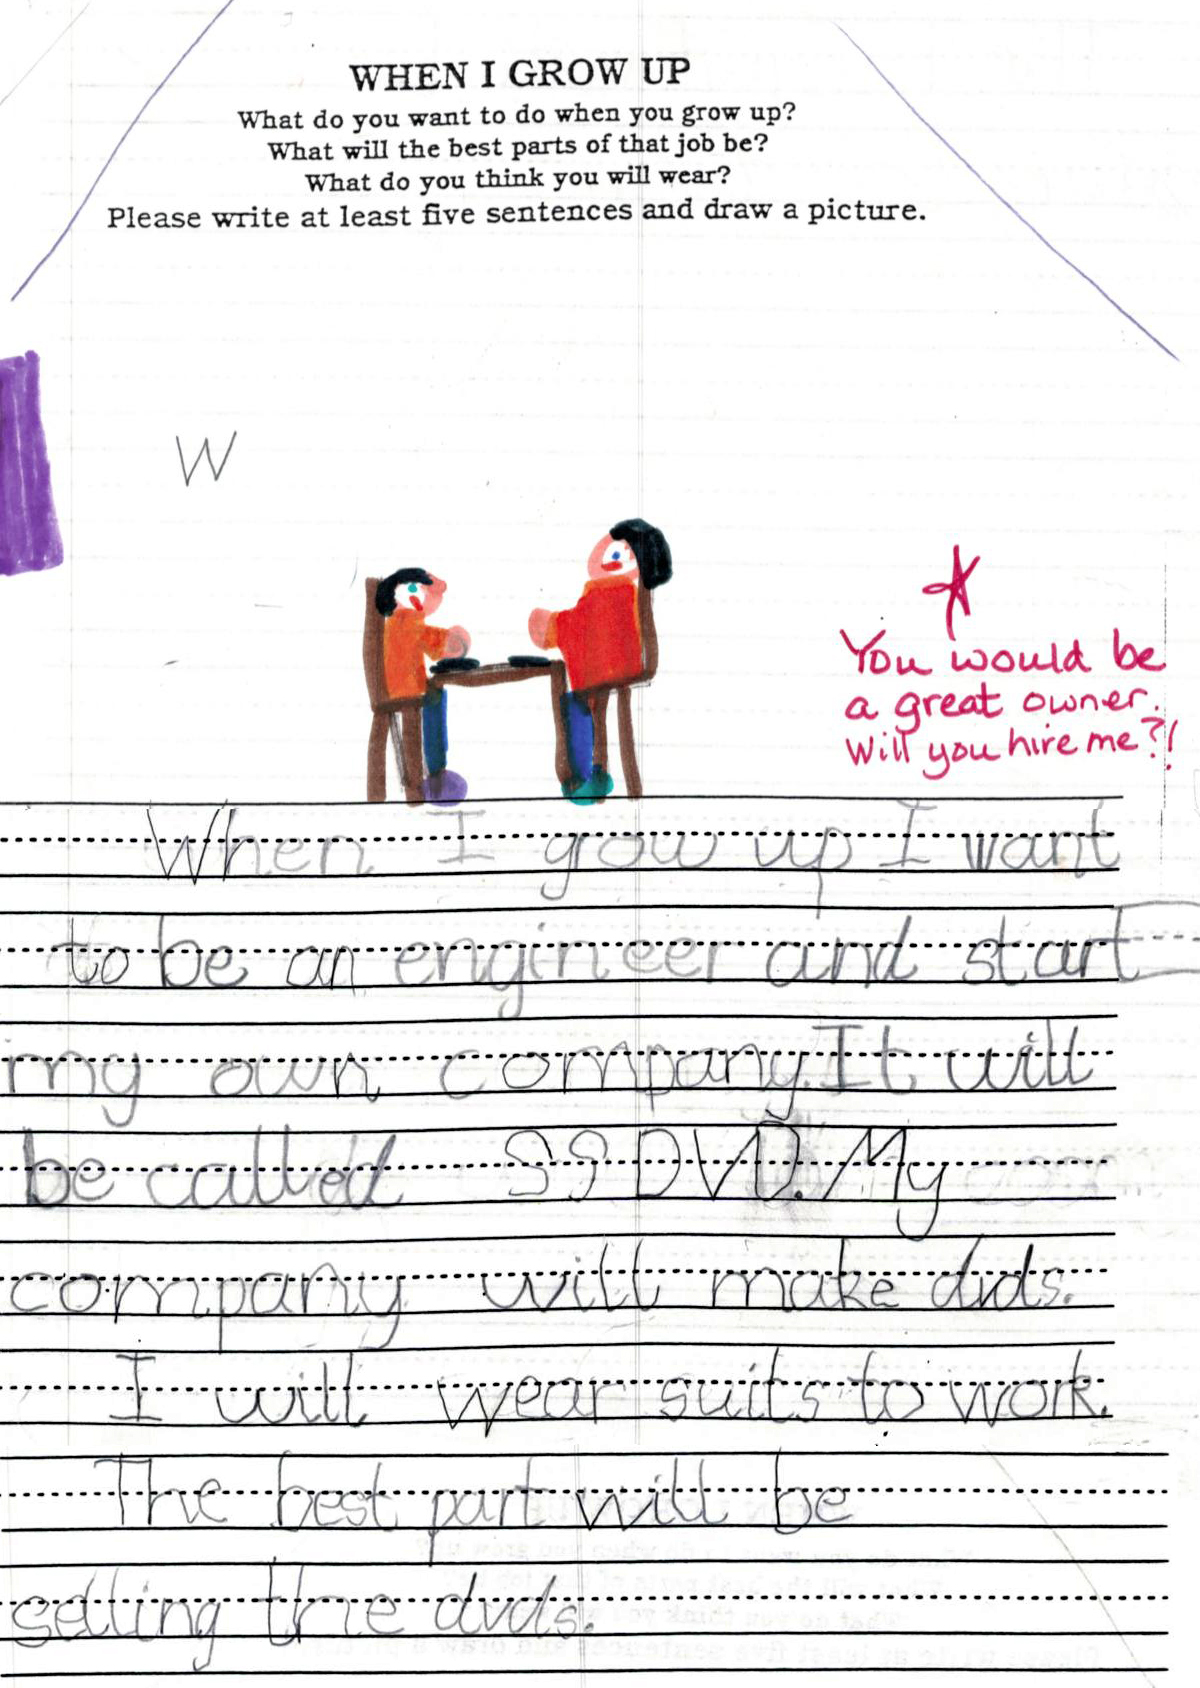 WHEN I GROW UP
What do you want to do when you grow up?
What will the best parts of that job be?
What do you think you will wear?
Please write at least five sentences and draw a picture.
W
You would be
a great owner.
Will you hire me?!
When I grow up I want
to be an engineer and start
my own company. It will
be called SSDVD. My
company will make dvds.
I will wear suits to work.
The best part will be
selling the dvds.